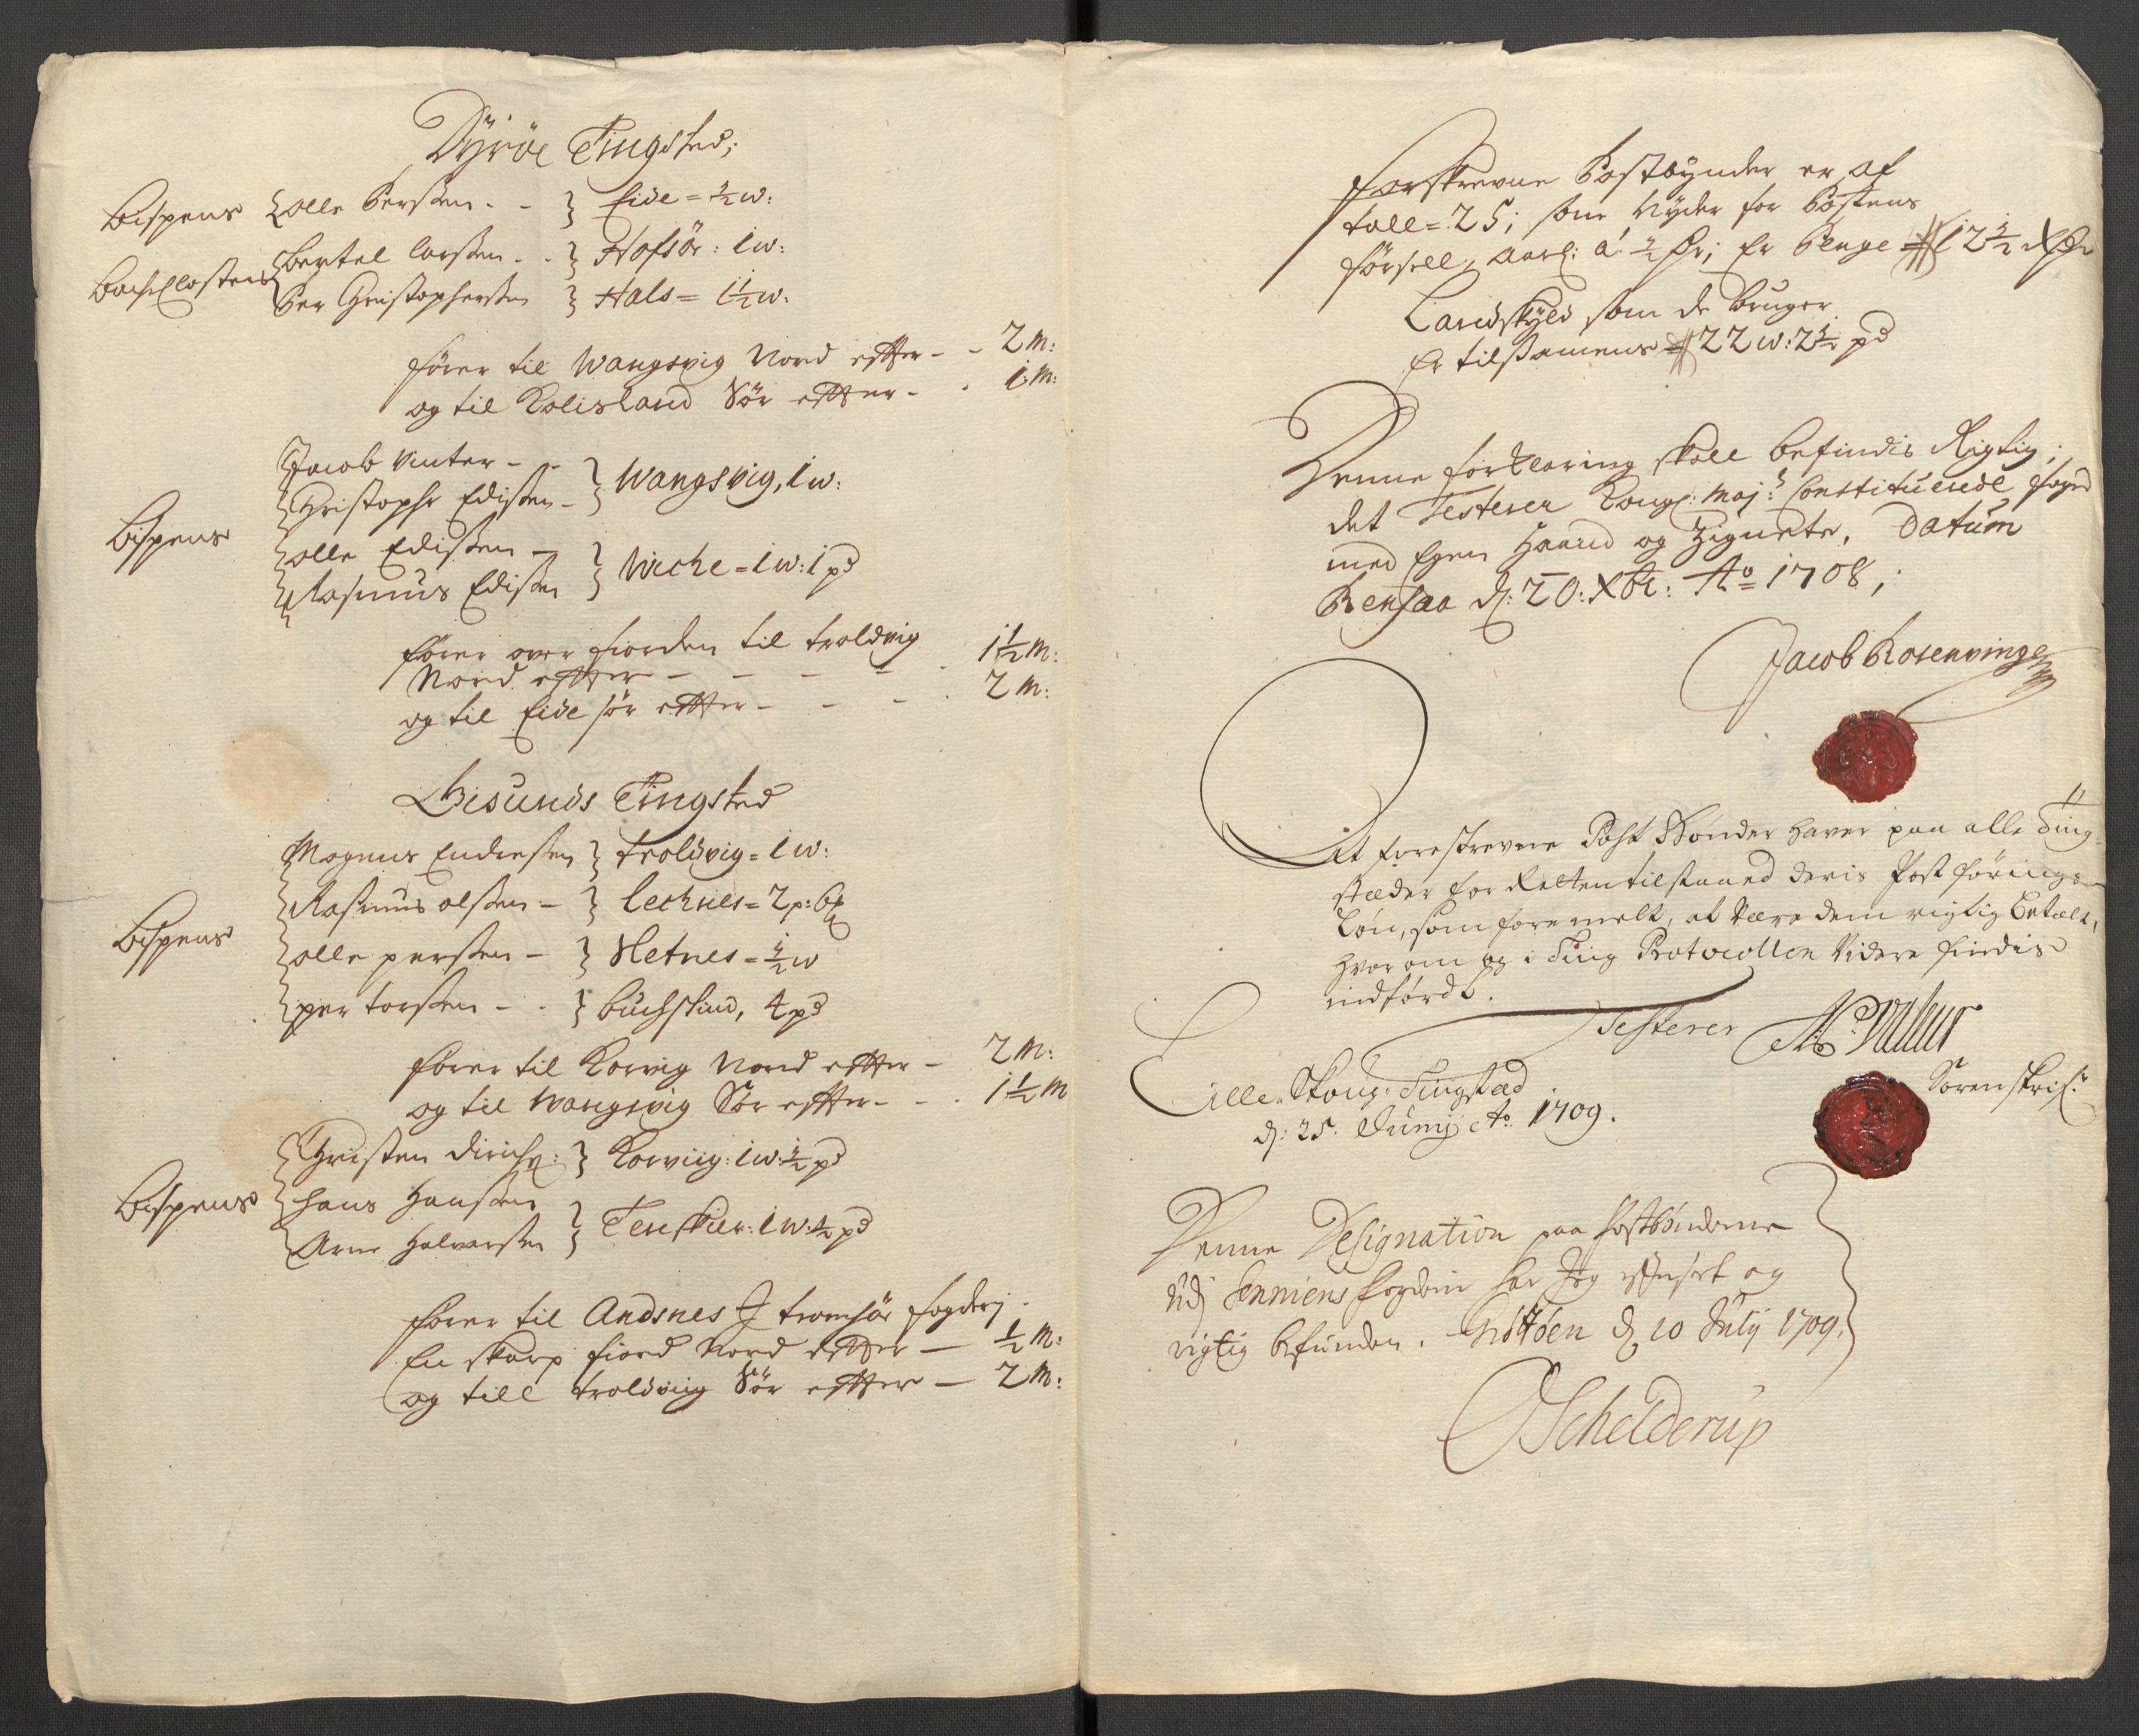 Dyröe Tingsted;
Bispens Olle Perssen - - Eide = ½ w:
Bachelosters Bertel Larssen - - Hofsör: 1 w:
Per Christophersen Hals = 1½ w.
fører til Wangsvig Nord effter - - 2 M:
og til Rolisland Sör effter - . 1 M:
Jacob Vinter - -
Christophr Edissen - Wangsvig, 1 w:
Bispens
Olle Edissen -
Rasmus Edissen Wiche = 1 w: 1 pd
fører over fiorden til troldvig
Nord effter - - - - 1½ M:
og til Eide sör effter - - - . 2 M:
Gisunds Tingsted
Magnus Endressen troldvig = 1 w:
Rasmus olssen - Lechnes = 2 p: 6
Bispens
olle perssen - Sletnes = ½ w
per torssen - - buchskind, 4 pd
fører til Korvig Nord effter - 2 M:
og til Wangsvig Sör effter - - . 1½ M
Christen Dirichs: Korviig: 1 w: ½ pd
Bispens Hans Hanssen
Arne Halvorssen Tenskier: 1 w: ½ pd
fører til Andsnes J tromsöe fogderj
En skarp fiord Nord effter - ½ M:
og till troldviig Sör effter - 2 M:
Forskrevne Postbynder er af
tall = 25; som Nyder for Postens
førsell, aarl: á ½ Dr; Er Penge 12½ Dr
Landskyld som de bruger
Er tilsamens 22 w: 2½ pd
Denne forklaring skall befindis Rigtig;
det Testerer Kongl: Maj:s Constituerede foged
med Egen Haand og Zignete, Datum
Rensaa d: 20: Xbr: Ao 1708;
Jacob Rosenvinge
At forskrevne Post Bønder haver paa alle Ting-
stæder for Retten tilstaaed deris Post førings
Løn, som formelt, at være dem rigtig betalt,
hvor om og i Ting Protocollen Videre findis
indført.
Testerer
Sorenskrif:
Lille Skoug Tingstad
d: 25. Junij Ao 1709.
Denne Designation paa Postbønderne
Udj Senniens fogderie har Jeg efterseet og
rigtig befunden. Gröttöen d 10 July 1709.
Schelderup